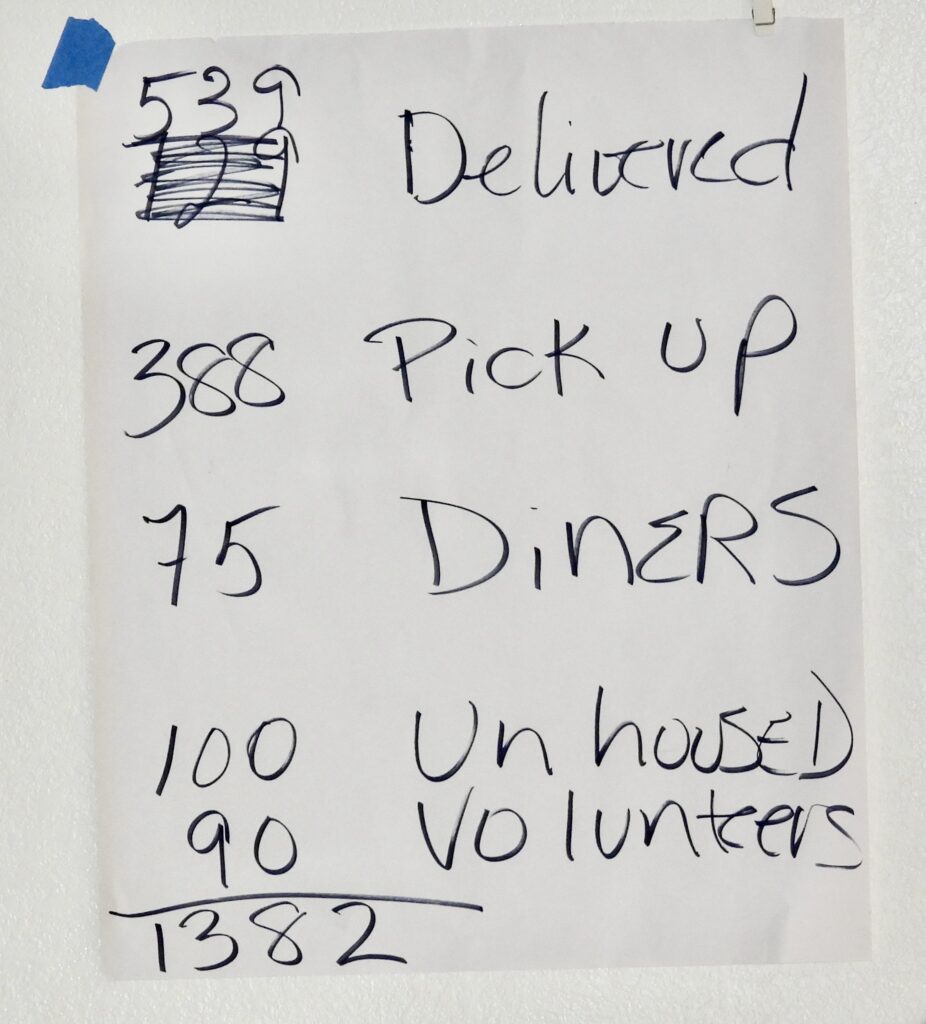 539 Delivered
129
388 Pick up
75 DinERS
100 Un housED
90 Volunteers
1382